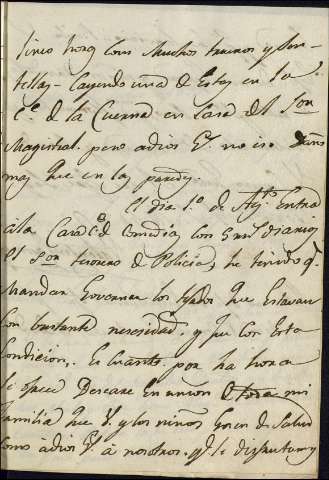 cinco horas con Muchos truenos y Sen-
tellas - Cayendo una de Estas en la
C.e de la Cuerna en Casa del Sor
Magistral. pero adios G.s no iso Daño
mas que en las paredes.
El dia 1.o de Ag.to Entra
a la Casa de Comedia, con 5 mrs diarios
El Sor tesorero de Policia, ha tenido q.e
Mandar Governar los tejados que Estavan
con bastante necesidad y que con Esta
Condicion. Es Cuanto por ha hora
Se ofrece Deseare En union mi
familia que V. y los niños Gosen de Salud
como adios G.s a nosotros. q.e le disfrutamos